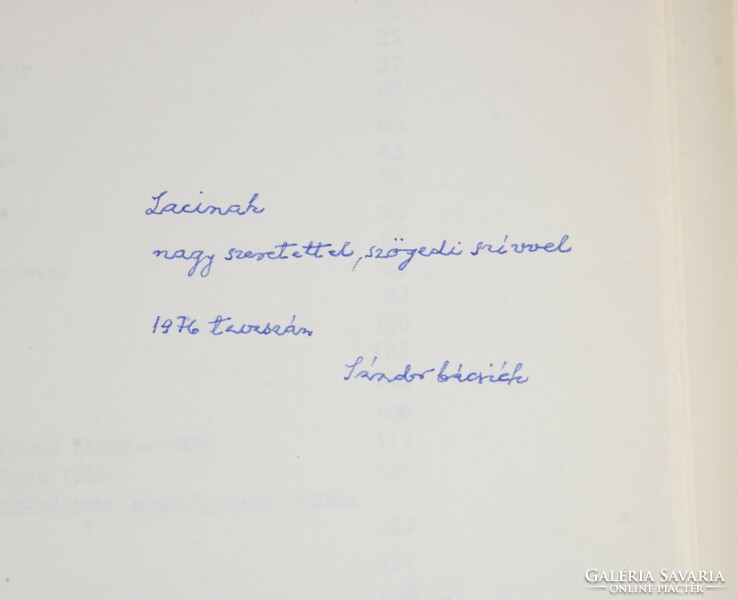 Lacinak
nagy szeretettel, szögedi szívvel
1976 tavaszán
Sándor bácsiék
GALÉRIA SAVARIA
ONLINE PIACTÉR